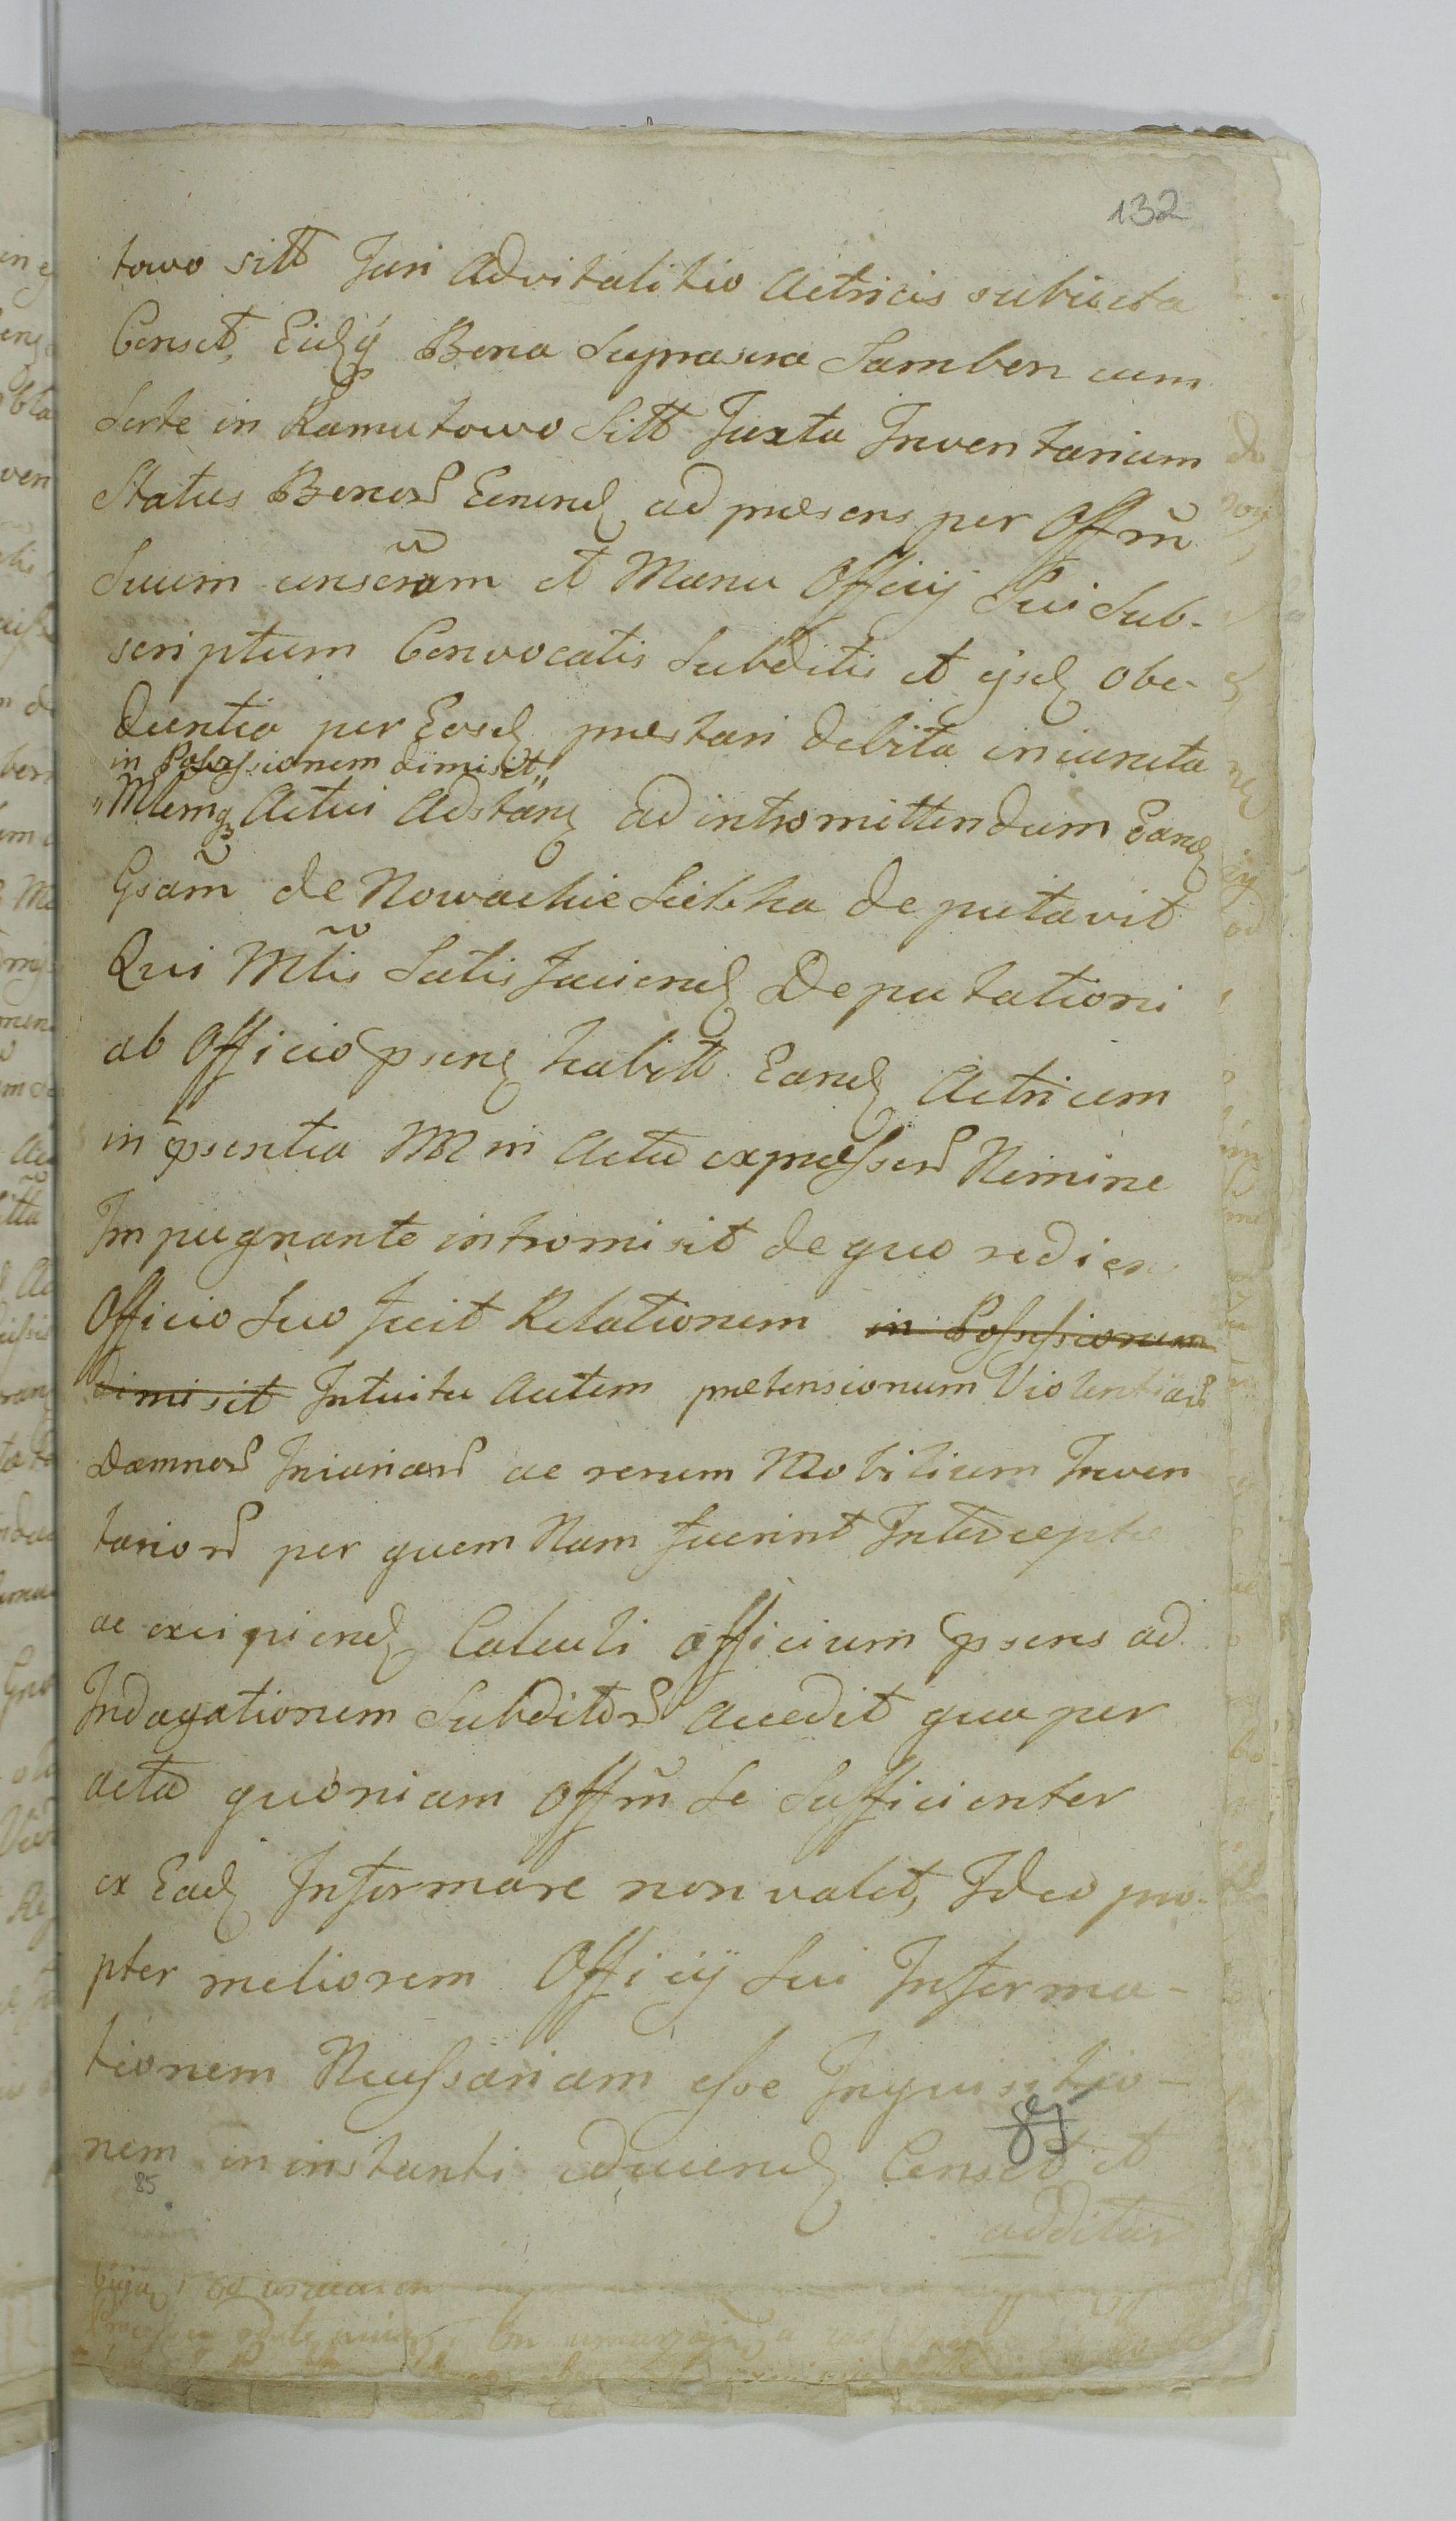 132
towo sitt Juri Advitalitio Actricis subiecta
Censet, Eidq̃ Bona Suprascra Lamben cum
Sorte in Ramutowo Sitt Juxta Inventarium
Status Bonor Eorund ad præsens per Offm̃
Suum conscrãm et Manu Officij Sui Sub-
scriptum Convocatis Subditis et ijsd obe-
dientia per Eosd præstari debita iniuncta
in Possessionem dimisit"
"Mlemq Actui Adstan ad intromittendum Eand
Gsam̃ de Nowackie Sielska deputavit
Qui Mtis̃ Satisfaciend Deputationi
ab Officio psens habitt Eand Actricem
in psentia MM in Actu expressor Nemine
Impugnante intromisit de quo redien
Officio Suo fecit Relationem in Possessionem
dimisit Intuitu Autem prætensionum Violentiar
Damnor Iniuriar ac rerum Mobilium Inven
tarior per quem Nam fuerint Intercepte
ac excipiend Calculi Officium psens ad
Indagationem Subditor Accedit qua per
acta quoniam Offm̃ Se Sufficienter
ex Ead Informare non valet, Ideo pro-
pter meliorem Officij Sui Informa-
tionem Necessariam esse Inquisitio-
nem in instanti educend Censet et
85
additur